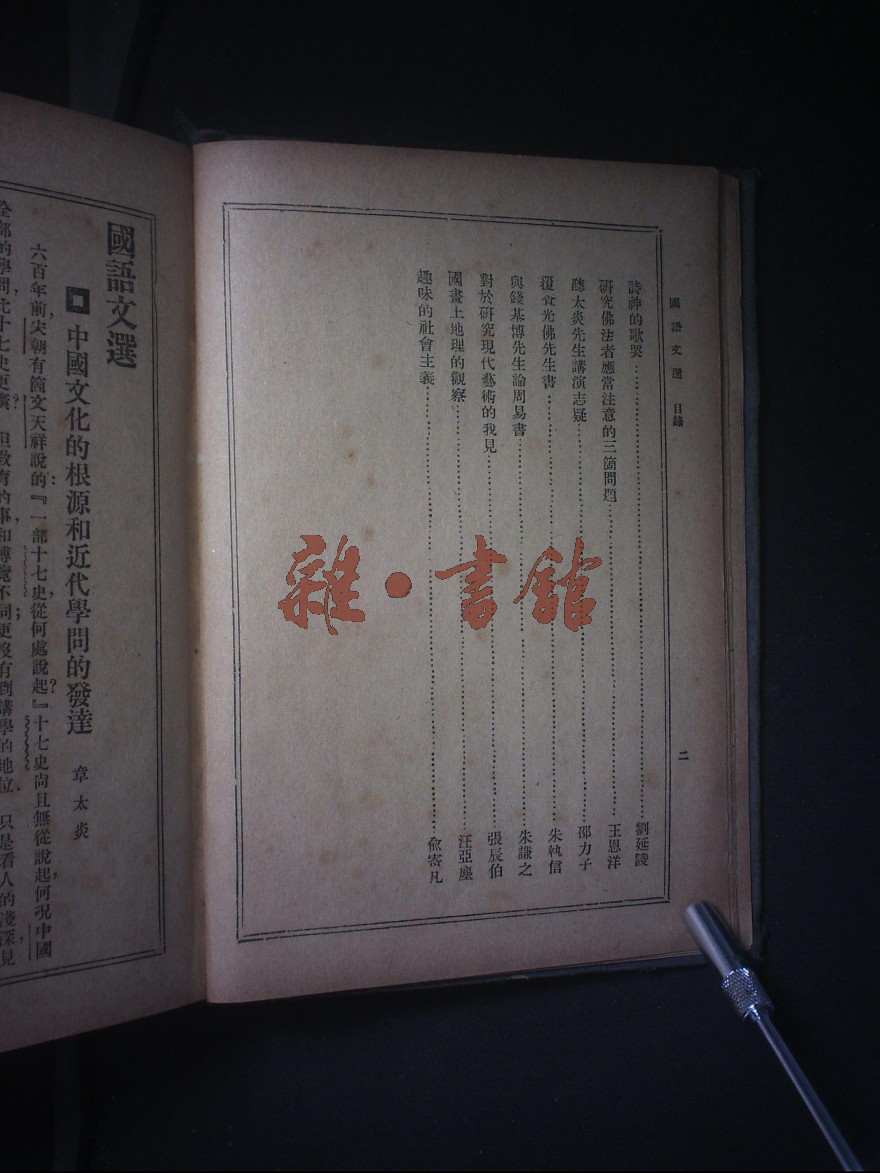 國語文選 目錄
二
詩神的歌哭……劉延陵
研究佛法者應當注意的三箇問題……王恩洋
聽太炎先生講演志疑……邵力子
覆食光佛先生書……朱執信
與錢基博先生論周易書……朱謙之
對於研究現代藝術的我見……張辰伯
國畫上地理的觀察……汪亞塵
趣味的社會主義……兪寄凡
國語文選
中國文化的根源和近代學問的發達 章太炎
六百年前，宋朝有箇文天祥說的：『一部十七史，從何處說起？』十七史尚且無從說起，何况中國
全部的學問，比十七史更廣？但教育的事，和博覽不同；更沒有到講學的地位，只是看人的淺深，見
雜·書館